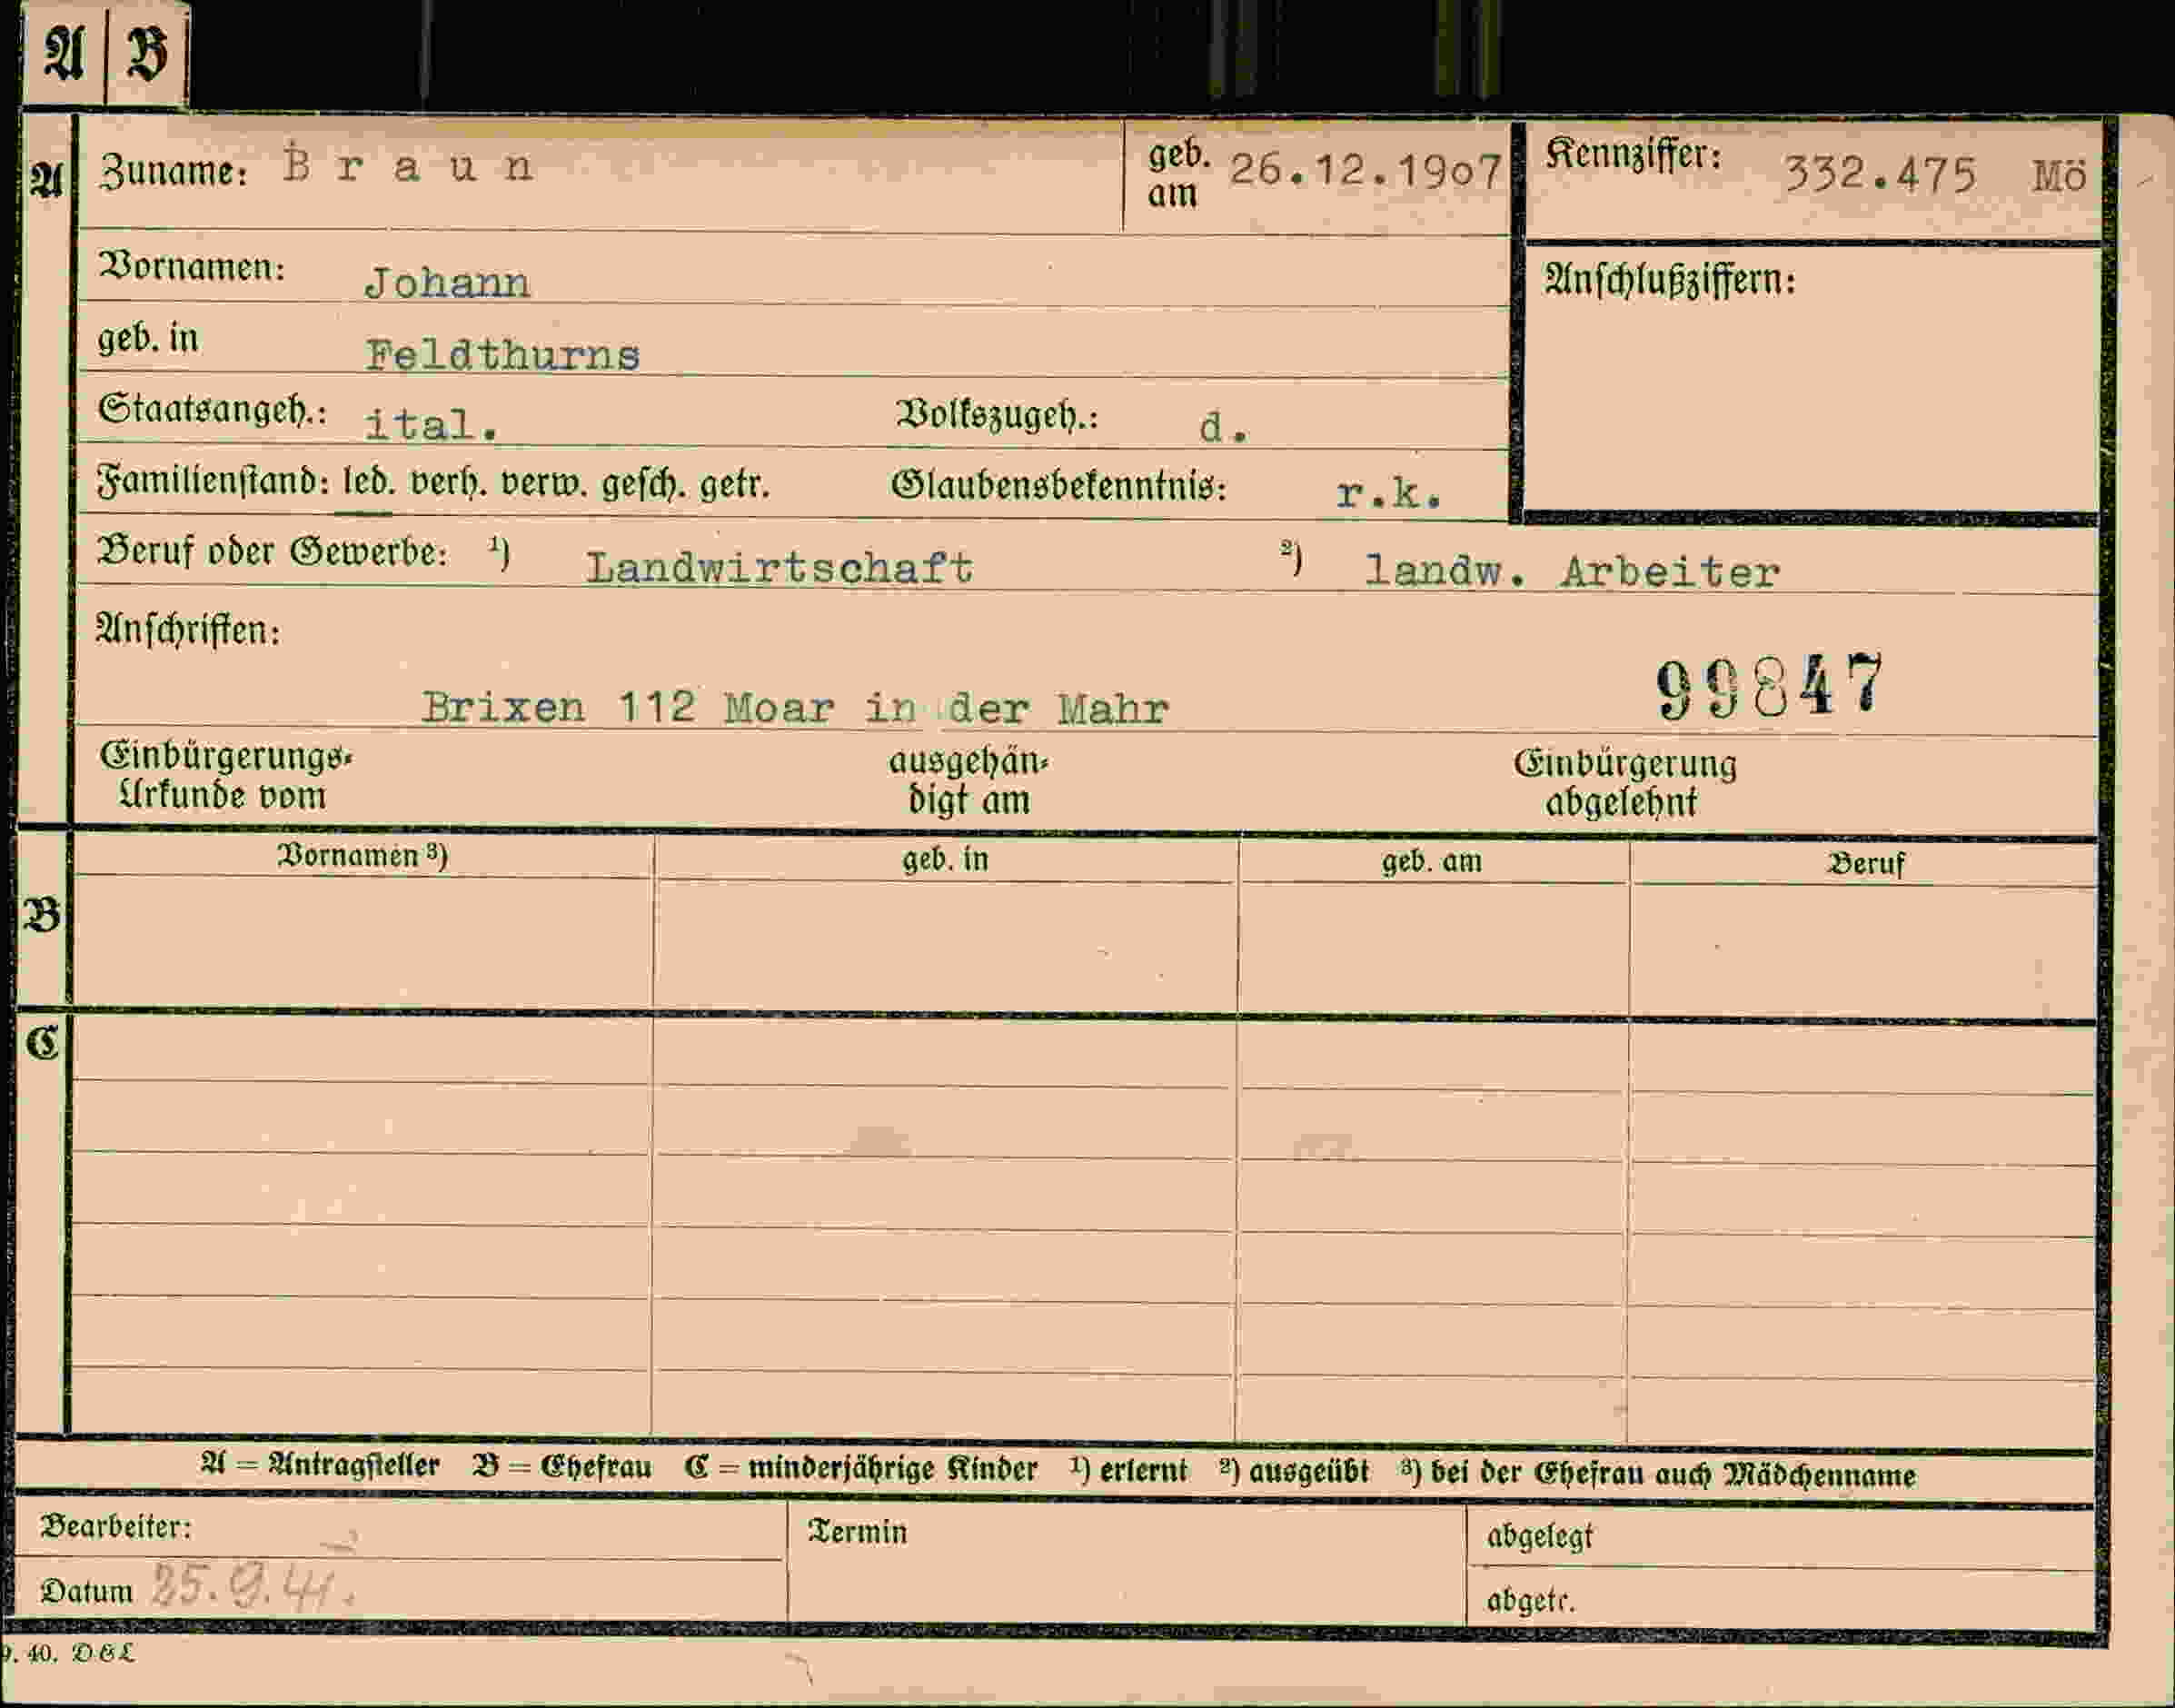 A B
A Zuname: Braun geb. am 26.12.1907 Kennziffer: 332.475 Mö
Vornamen: Johann Anschlußziffern:
geb. in Feldthurns
Staatsangeh.: ital. Volkszugeh.: d.
Familienstand: led. verh. verw. gesch. getr. Glaubensbekenntnis: r.k.
Beruf oder Gewerbe: ¹) Landwirtschaft ²) landw. Arbeiter
Anschriften:
99847
Brixen 112 Moar in der Mahr
Einbürgerungs- ausgehän- Einbürgerung
Urkunde vom digt am abgelehnt
Vornamen ³) geb. in geb. am Beruf
B
C
A = Antragsteller B = Ehefrau C = minderjährige Kinder ¹) erlernt ²) ausgeübt ³) bei der Ehefrau auch Mädchenname
Bearbeiter: Termin abgelegt
Datum 25.9.41. abgetr.
9. 40. D&L